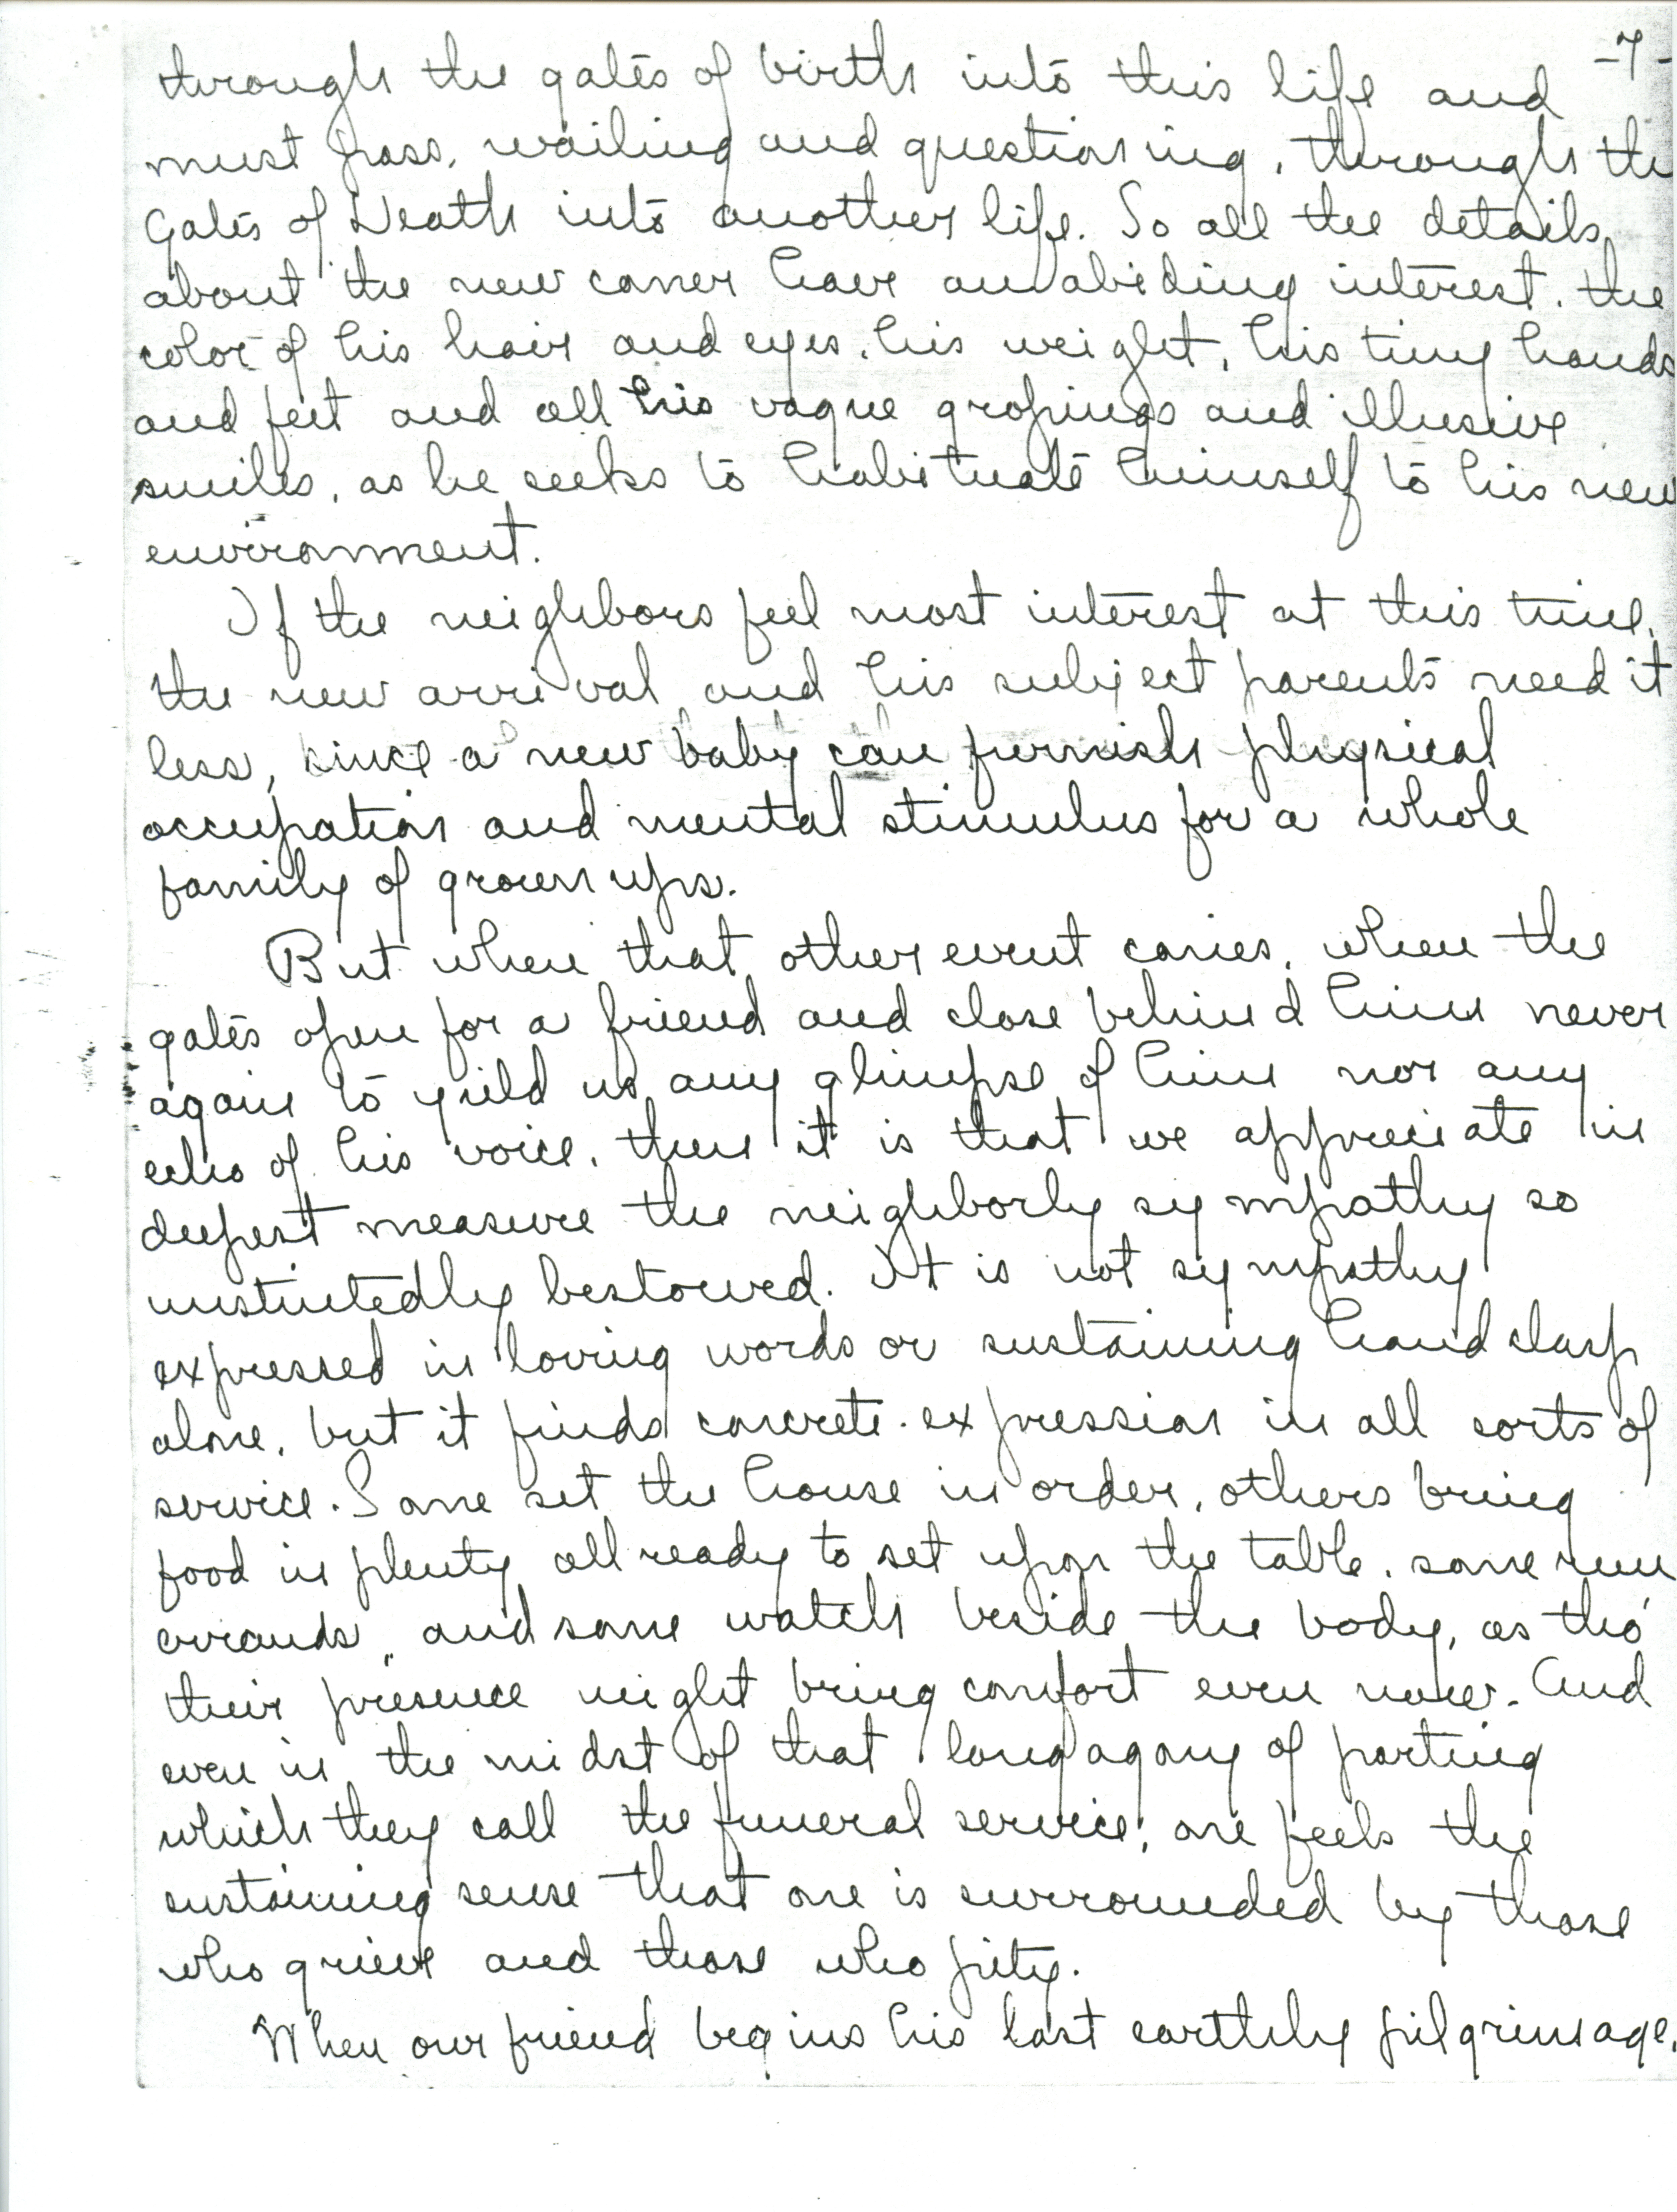 -7-
through the gates of birth into this life and
must pass, wailing and questioning, through the
Gates of Death into another life. So all the details
about the new comer have an abiding interest. the
color of his hair and eyes, his weight, his tiny hands
and feet and all his vague gropings and illusive
smiles, as he seeks to habituate himself to his new
environment.
If the neighbors feel most interest at this time,
the new arrival and his subject parents need it
less, since a new baby can furnish physical
occupation and mental stimulus for a whole
family of grown ups.
But when that other event comes, when the
gates open for a friend and close behind him never
again to yield us any glimpse of him nor any
echo of his voice, then it is that we appreciate in
deepest measure the neighborly sympathy so
unstintedly bestowed. It is not sympathy
expressed in loving words or sustaining hand clasp
alone, but it finds concrete expression in all sorts of
service. Some set the house in order, others bring
food in plenty all ready to set upon the table, some run
errands, and some watch beside the body, as tho'
their presence might bring comfort even now. And
even in the midst of that long agony of parting
which they call the funeral service, one feels the
sustaining sense that one is surrounded by those
who grieve and those who pity.
When our friend begins his last earthly pilgrimage,